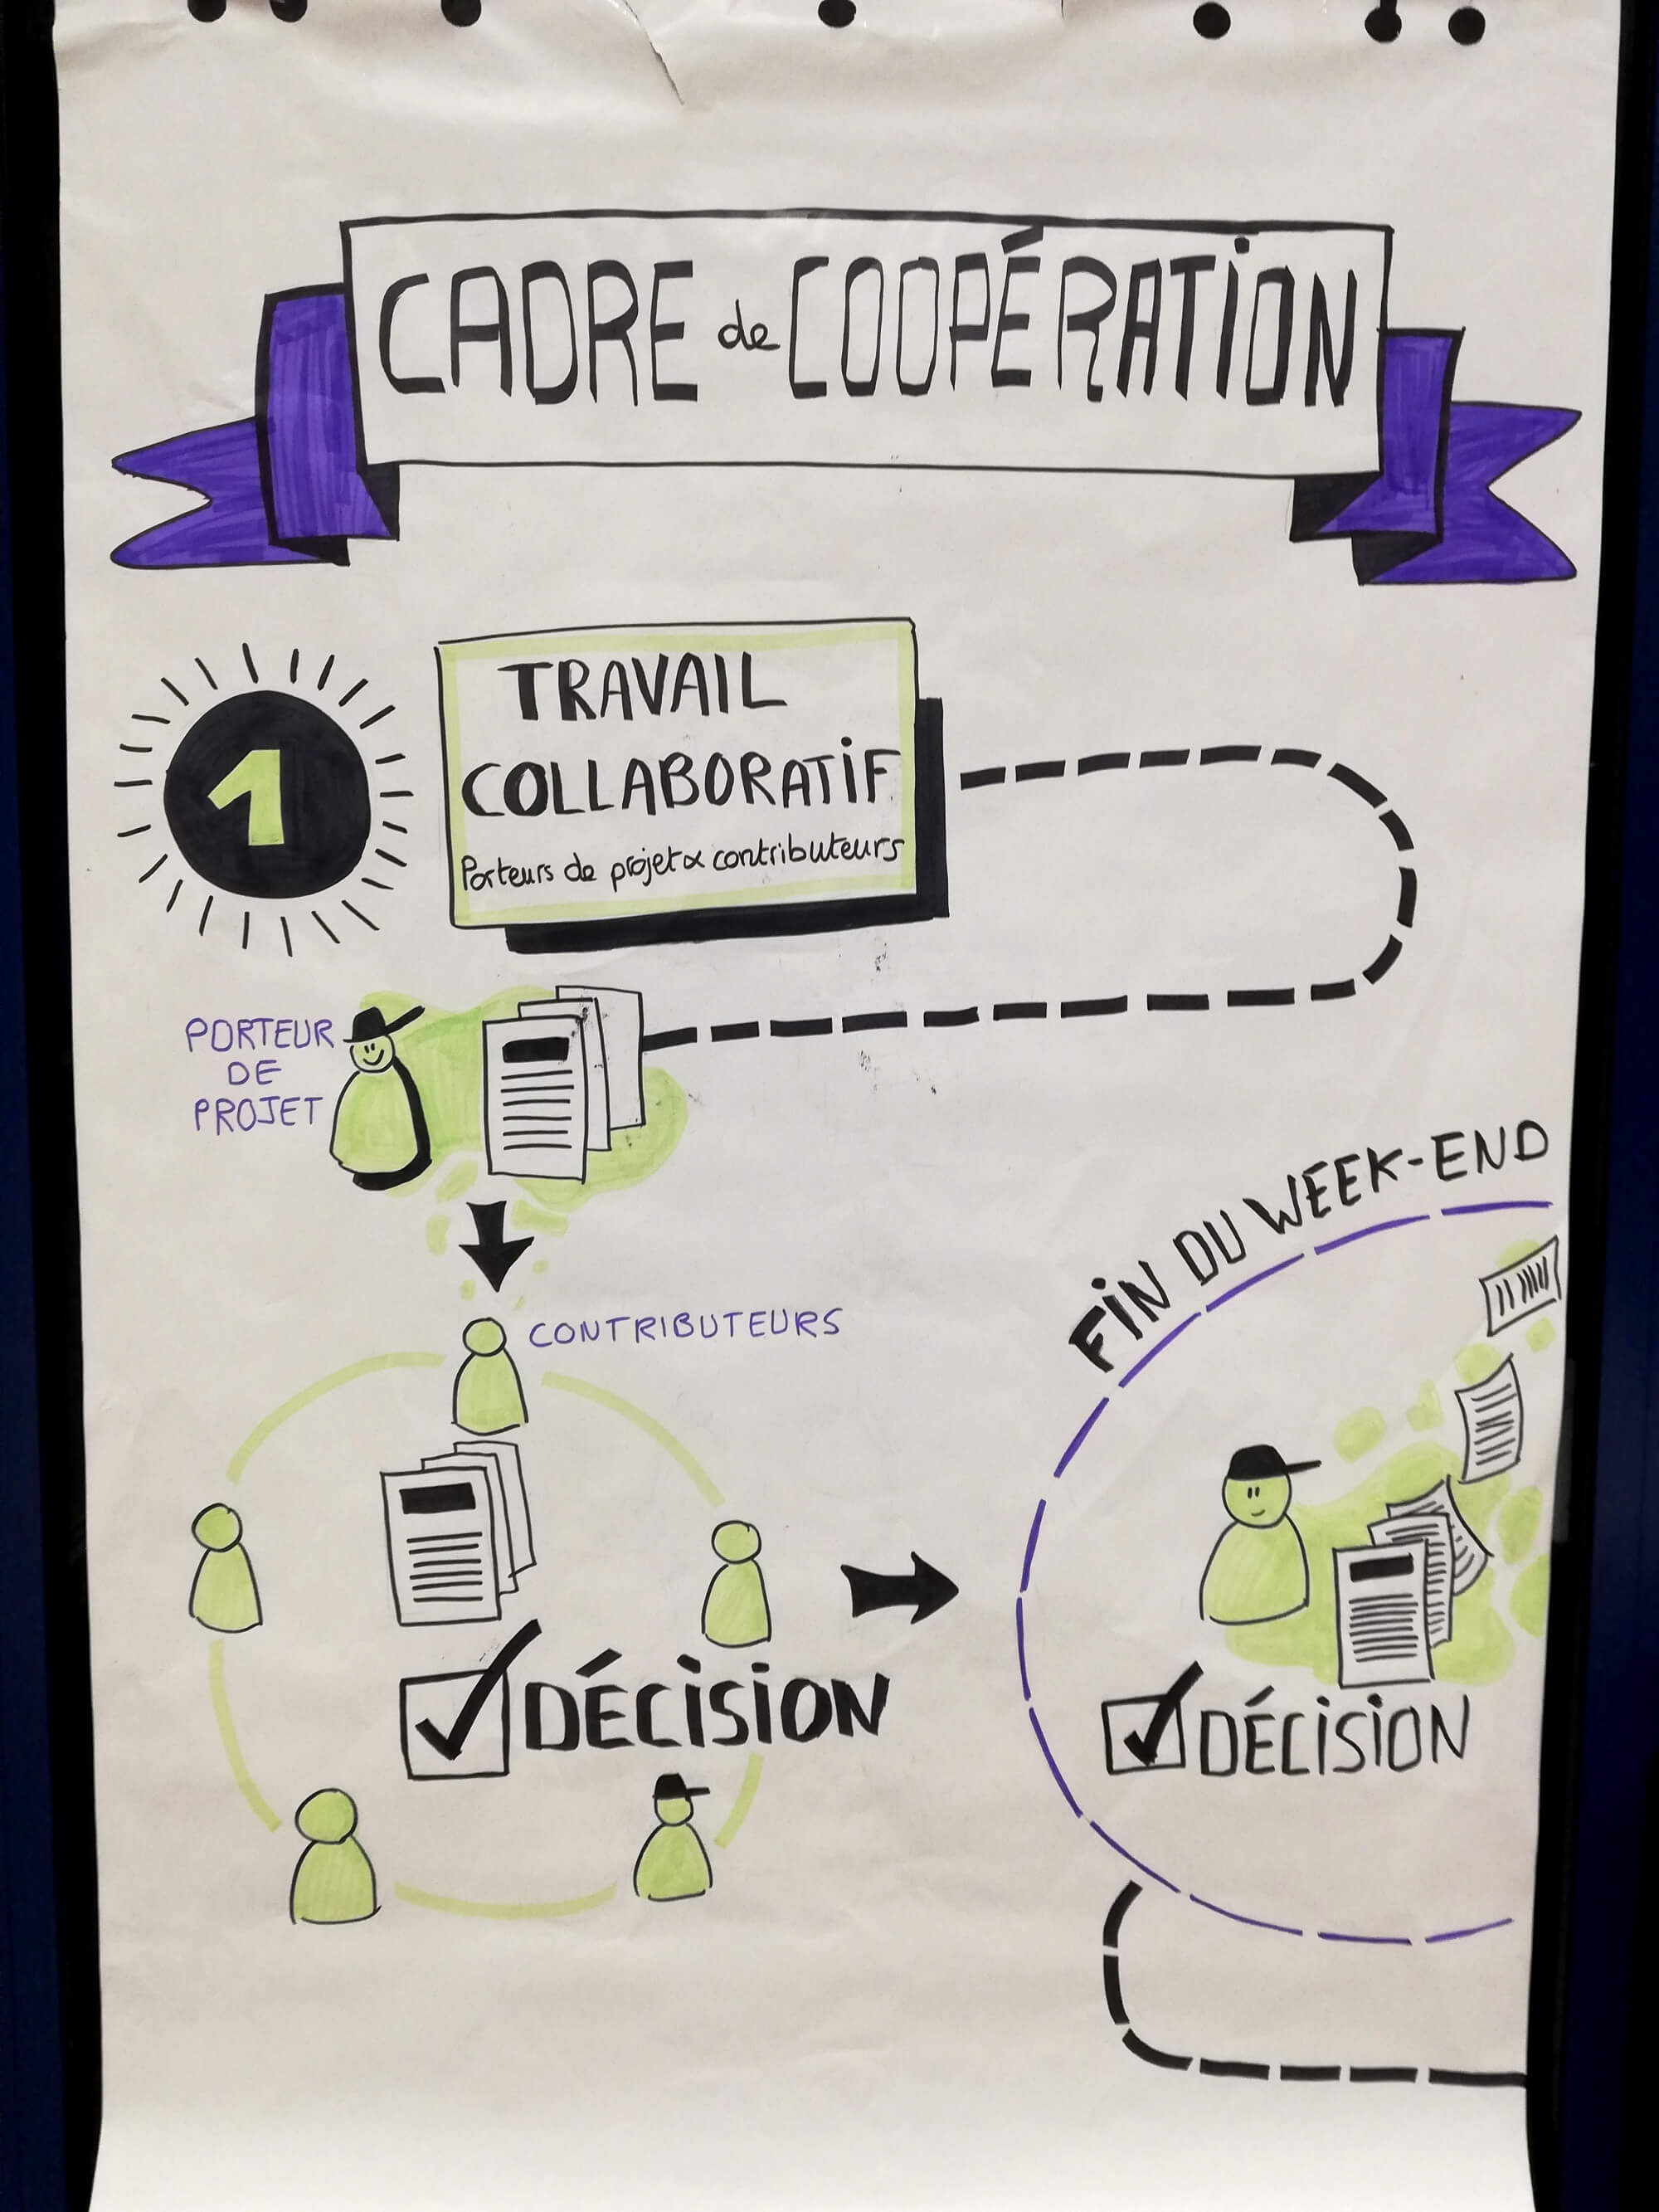 CADRE de COOPÉRATION
1
TRAVAIL
COLLABORATIF
Porteurs de projet & contributeurs
PORTEUR
DE
PROJET
FIN DU WEEK-END
CONTRIBUTEURS
DÉCISION
DÉCISION